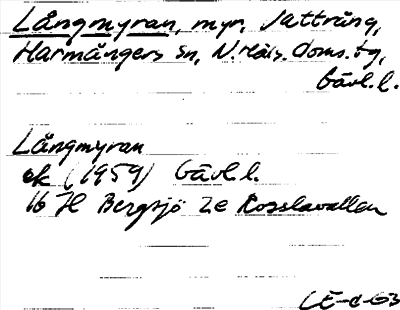 Långmyran, myr, Jätträng,
Harmångers sn, N. Häls. doms. tg,
Gävl. l.
Långmyran
ek (1959) Gävl. l.
16 H Bergsjö 2e Rosslavallen